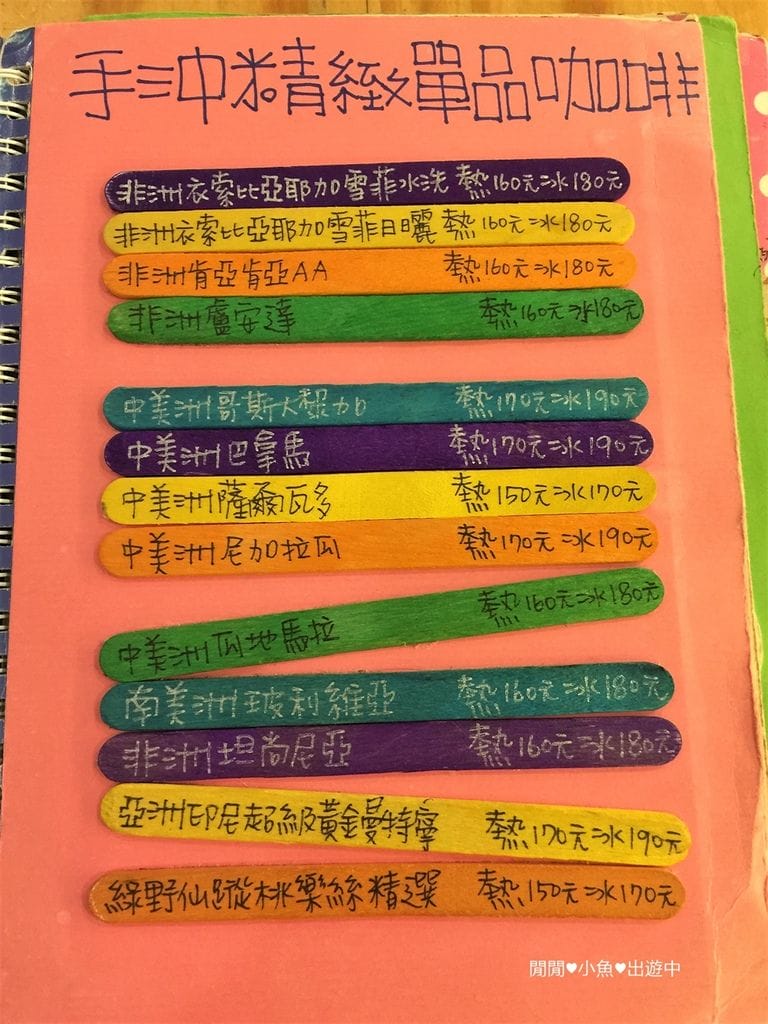 手冲精緻單品咖啡
非洲衣索比亞耶加雪菲水洗 熱160元冰180元
非洲衣索比亞耶加雪菲日曬 熱160元冰180元
非洲肯亞肯亞AA 熱160元冰180元
非洲盧安達 熱160元冰180元
中美洲哥斯大黎加 熱170元冰190元
中美洲巴拿馬 熱170元冰190元
中美洲薩爾瓦多 熱150元冰170元
中美洲尼加拉瓜 熱170元冰190元
中美洲瓜地馬拉 熱160元冰180元
南美洲玻利維亞 熱160元冰180元
非洲坦尚尼亞 熱160元冰180元
亞洲印尼超級黃金曼特寧 熱170元冰190元
綠野仙蹤桃樂絲精選 熱150元冰170元
閒閒♥小魚♥出遊中